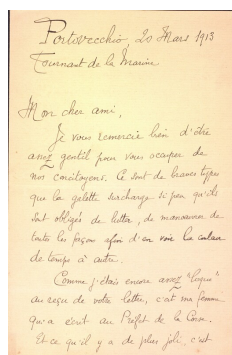 Portovecchio, 20 Mars 1913
Tournant de la Marine
Mon cher ami,
Je vous remercie bien d'être
assez gentil pour vous occuper de
nos concitoyens. Ce sont de braves types
que la galette surcharge si peu qu'ils
sont obligés de lutter, de manœuvrer de
toutes les façons afin d'en voir la couleur
de temps à autre.
Comme j'étais encore assez "
au reçu de votre lettre, c'est ma femme
qui a écrit au Préfet de la Corse.
Et ce qu'il y a de plus joli, c'est